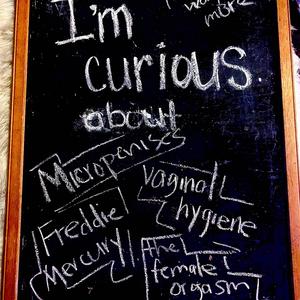 wa
more
I'm
curious.
about
Micropenises
Vaginal
hygiene
Freddie
Mercury
the
female
orgasm